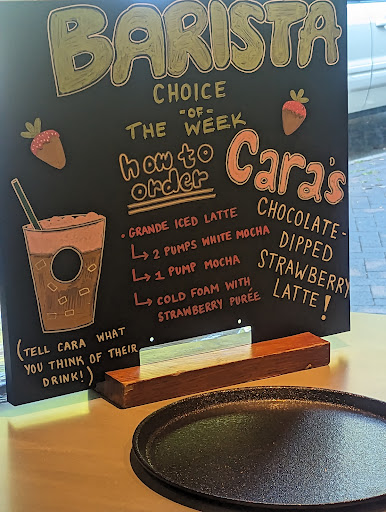 BARISTA
CHOICE
-OF-
THE WEEK
how to
order
Cara's
CHOCOLATE-
DIPPED
STRAWBERRY
LATTE!
• GRANDE ICED LATTE
↳ 2 PUMPS WHITE MOCHA
↳ 1 PUMP MOCHA
↳ COLD FOAM WITH
STRAWBERRY PURÉE
(TELL CARA WHAT
YOU THINK OF THEIR
DRINK!)